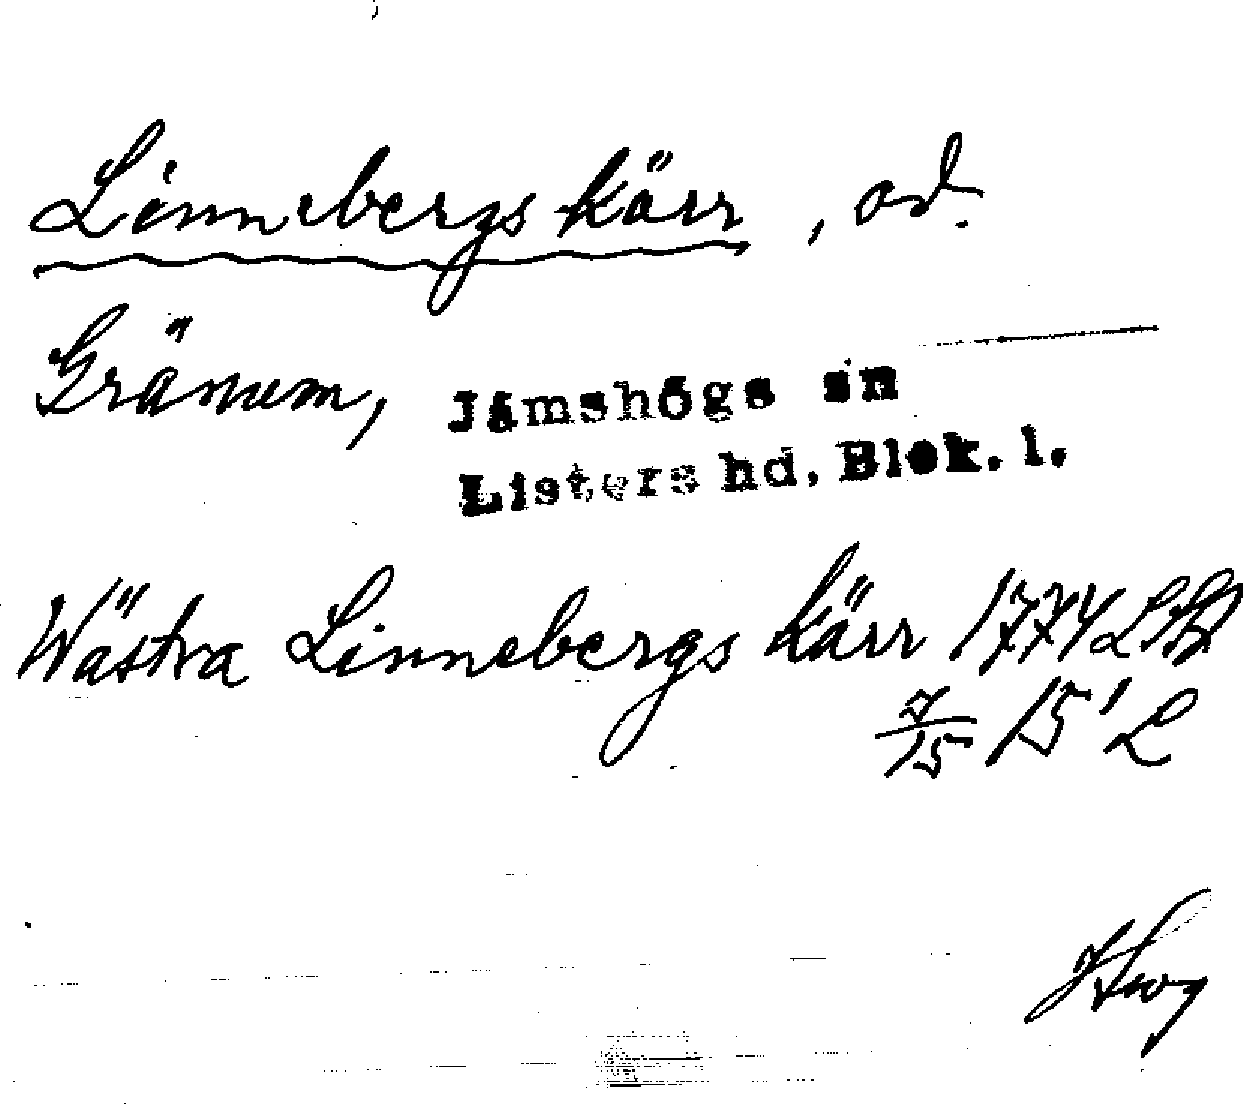 Linnebergskärr, od.
Gränum, Jämshögs sn
Listers hd. Blek. l.
Wästra Linnebergs kärr 1774
7/15 15' L